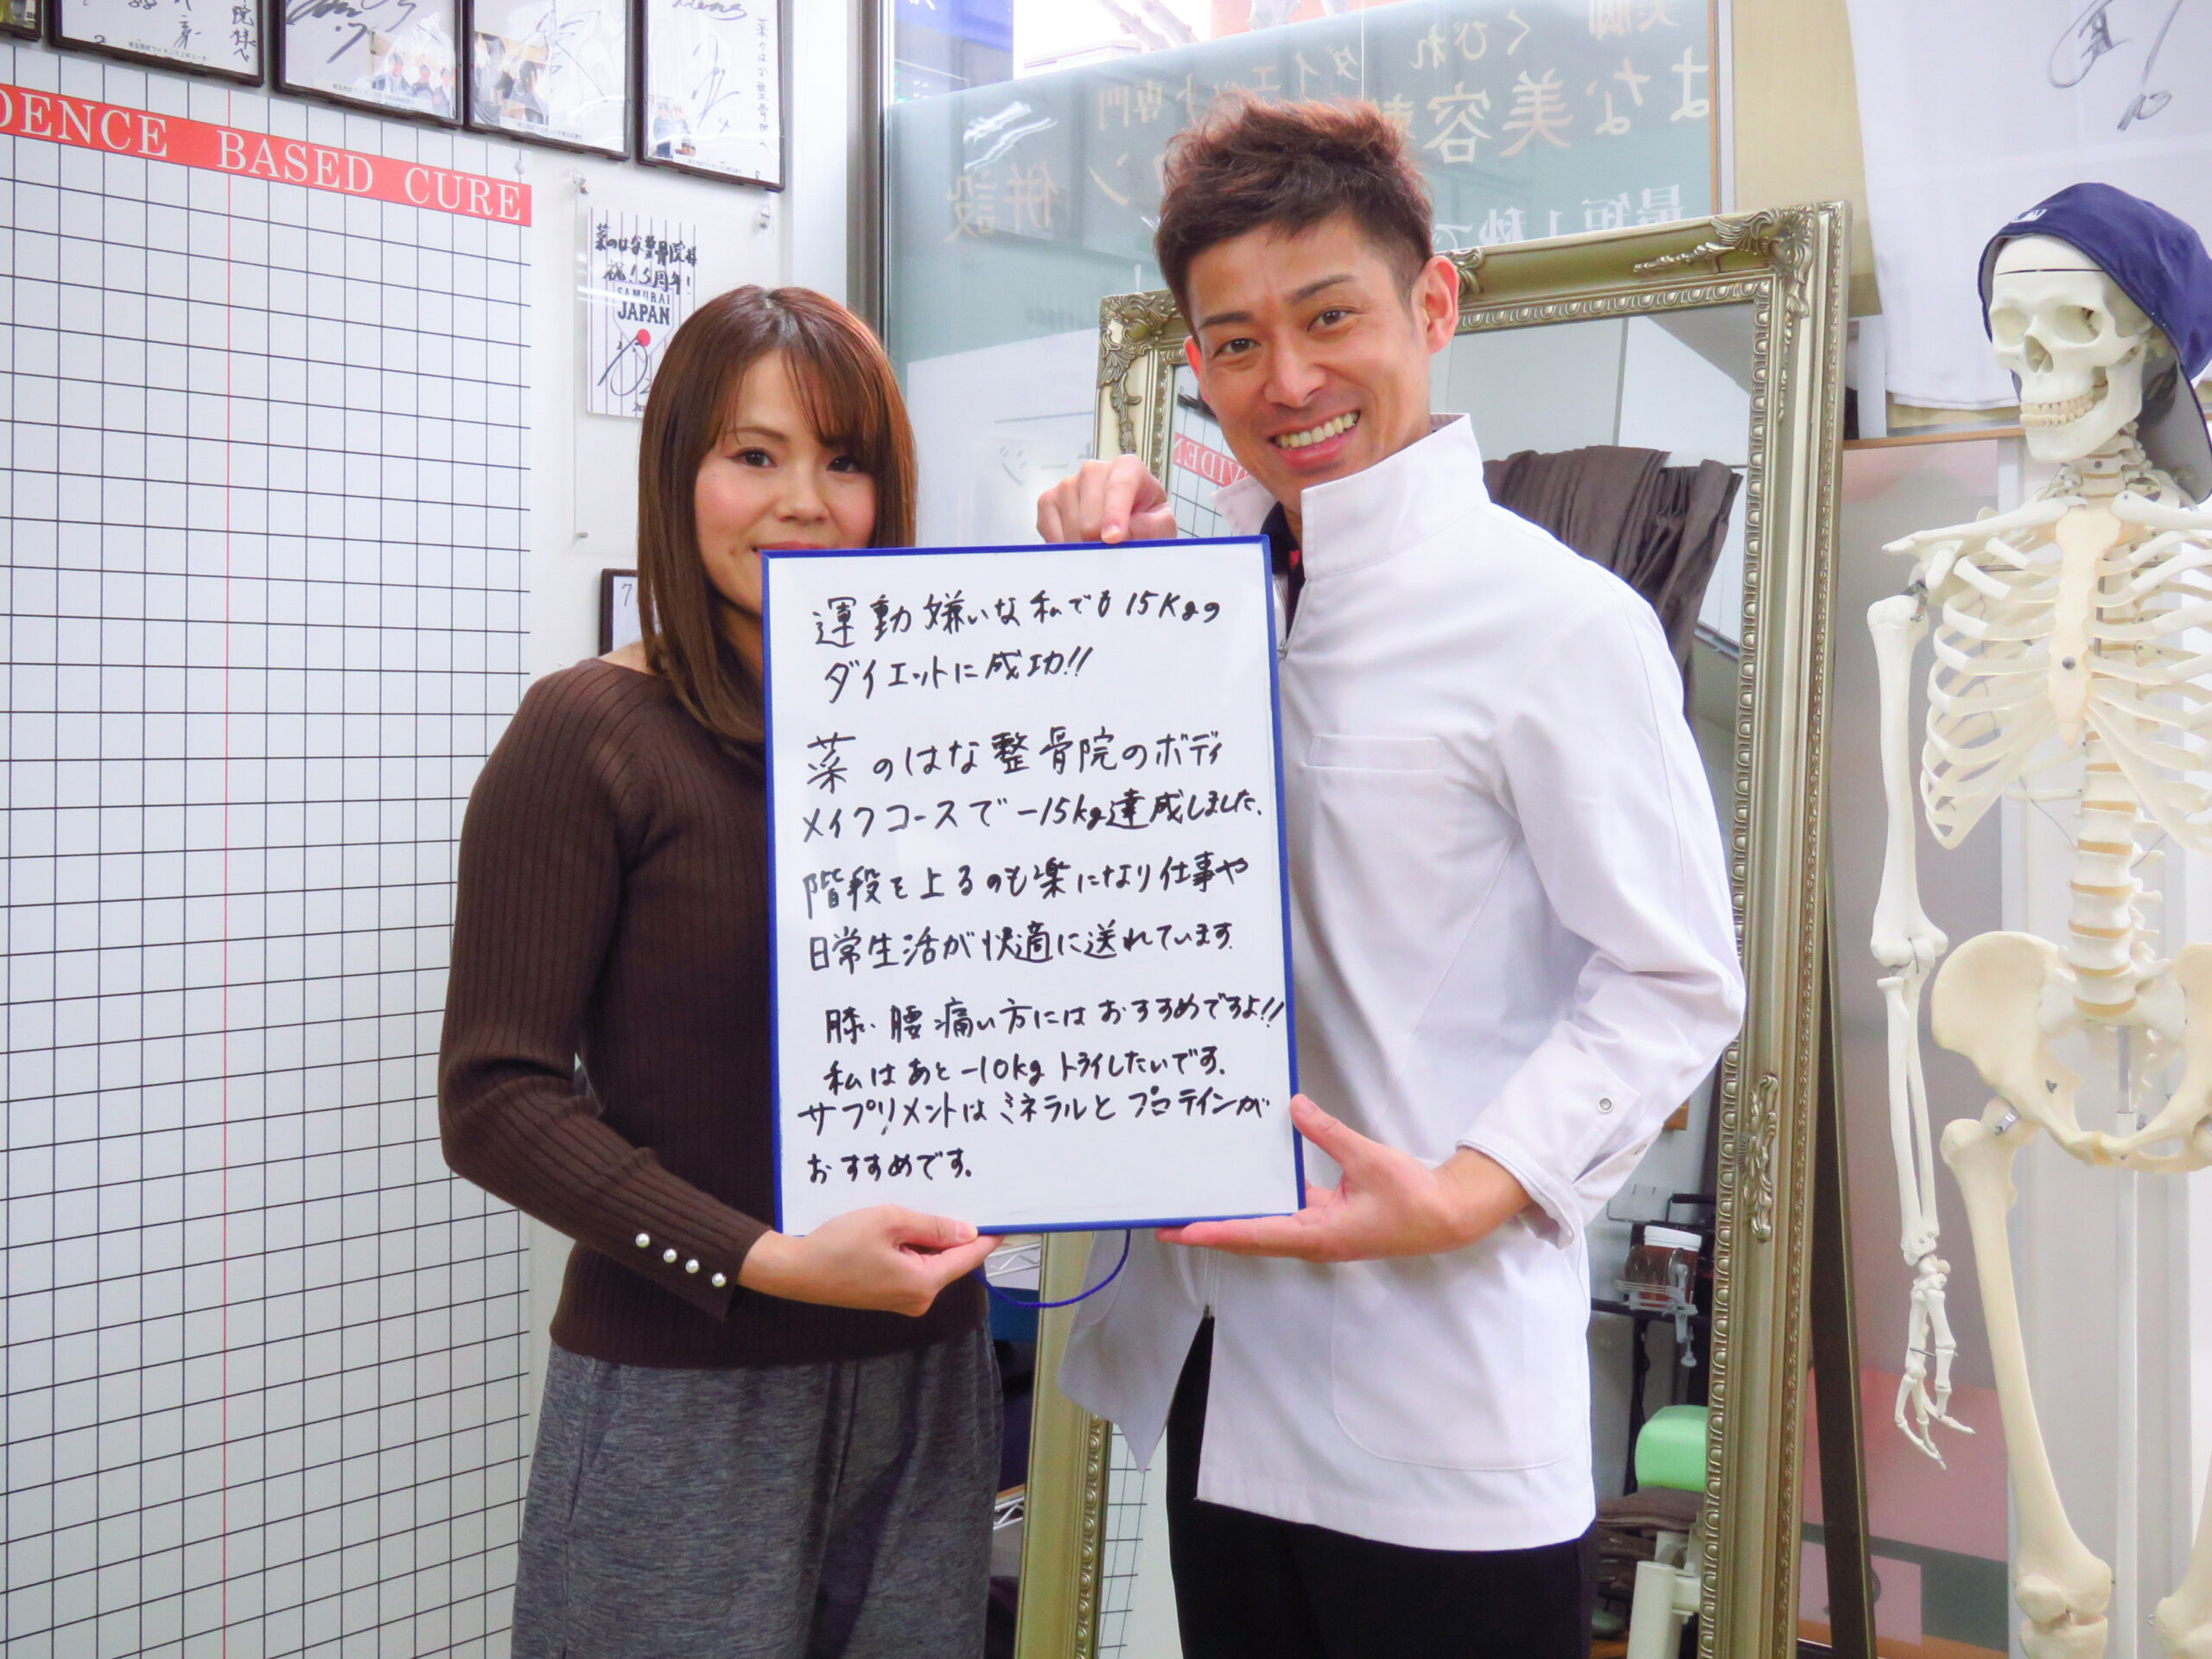 院様へ
菜のはな整骨院様へ
DENCE BASED CURE
菜のはな整骨院様
祝!15周年!
SAMURAI
JAPAN
美脚 くびれ ダイエット専門
はな美容整
併設
最短1秒で
運動嫌いな私でも15Kgの
ダイエットに成功!!
菜のはな整骨院のボディ
メイクコースで-15kg達成しました.
階段を上るのも楽になり仕事や
日常生活が快適に送れています.
膝、腰痛い方にはおすすめですよ!!
私はあと-10kgトライしたいです.
サプリメントはミネラルとプロテインが
おすすめです。